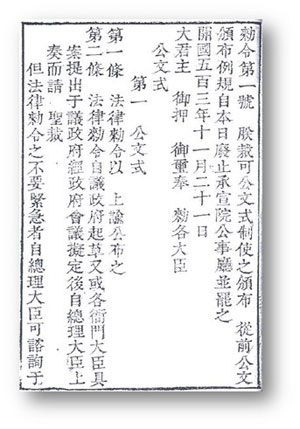 勅令第一號 朕裁可公文式制使之頒布 從前公文
頒布例規自本日廢止承宣院公事廳並罷之
開國五百三年十一月二十一日
大君主 御押 御璽奉 勅各大臣
公文式
第一 公文式
第一條 法律勅令以 上諭公布之
第二條 法律勅令自議政府起草又或各衙門大臣具
案提出于議政府經政府會議擬定後自總理大臣上
奏而請 聖裁
但法律勅令之不要緊急者自總理大臣可諮詢于